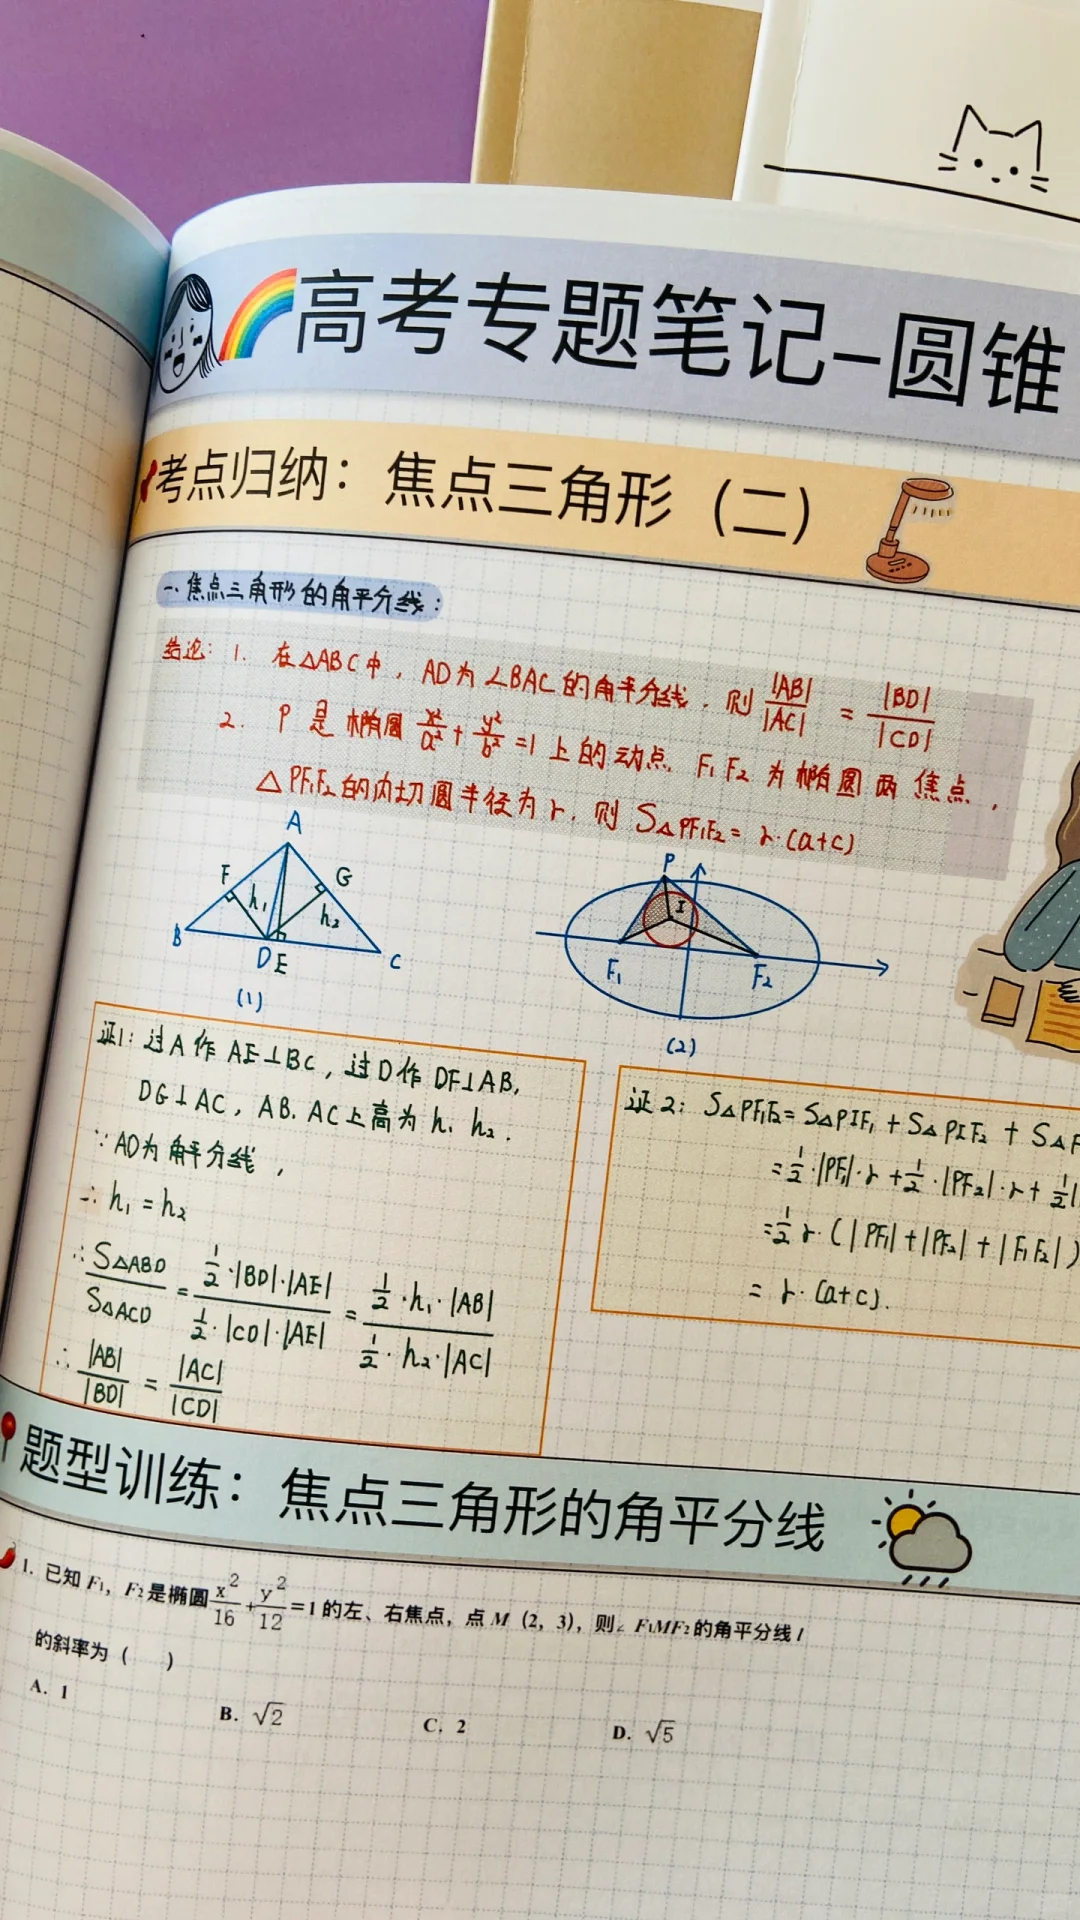 高考专题笔记-圆锥
考点归纳：焦点三角形（二）
一. 焦点三角形的角平分线：
结论：1. 在△ABC中，AD为∠BAC的角平分线，则 |AB|/|AC| = |BD|/|CD|
2. P是椭圆 x²/a² + y²/b² =1上的动点，F₁F₂为椭圆两焦点，
△PF₁F₂的内切圆半径为r，则 S△PF₁F₂= r·(a+c)
A
F
G
h₁
h₂
B
D E
C
(1)
P
I
F₁
F₂
(2)
证1：过A作AE⊥BC，过D作DF⊥AB，
DG⊥AC，AB. AC上高为h₁ h₂.
∵AD为角平分线，
∴h₁=h₂
∴ S△ABD/S△ACD = ½·|BD|·|AE| / ½·|CD|·|AE| = ½·h₁·|AB| / ½·h₂·|AC|
∴ |AB|/|BD| = |AC|/|CD|
证2：S△PF₁F₂= S△PIF₁ + S△PIF₂ + S△F
=½·|PF₁|·r +½·|PF₂|·r+ ½|
=½r·(|PF₁|+|PF₂|+|F₁F₂|)
= r·(a+c).
题型训练：焦点三角形的角平分线
1. 已知 F₁，F₂是椭圆 x²/16 + y²/12 =1的左、右焦点，点 M（2，3），则∠F₁MF₂的角平分线 l
的斜率为（ ）
A. 1 B. √2 C. 2 D. √5